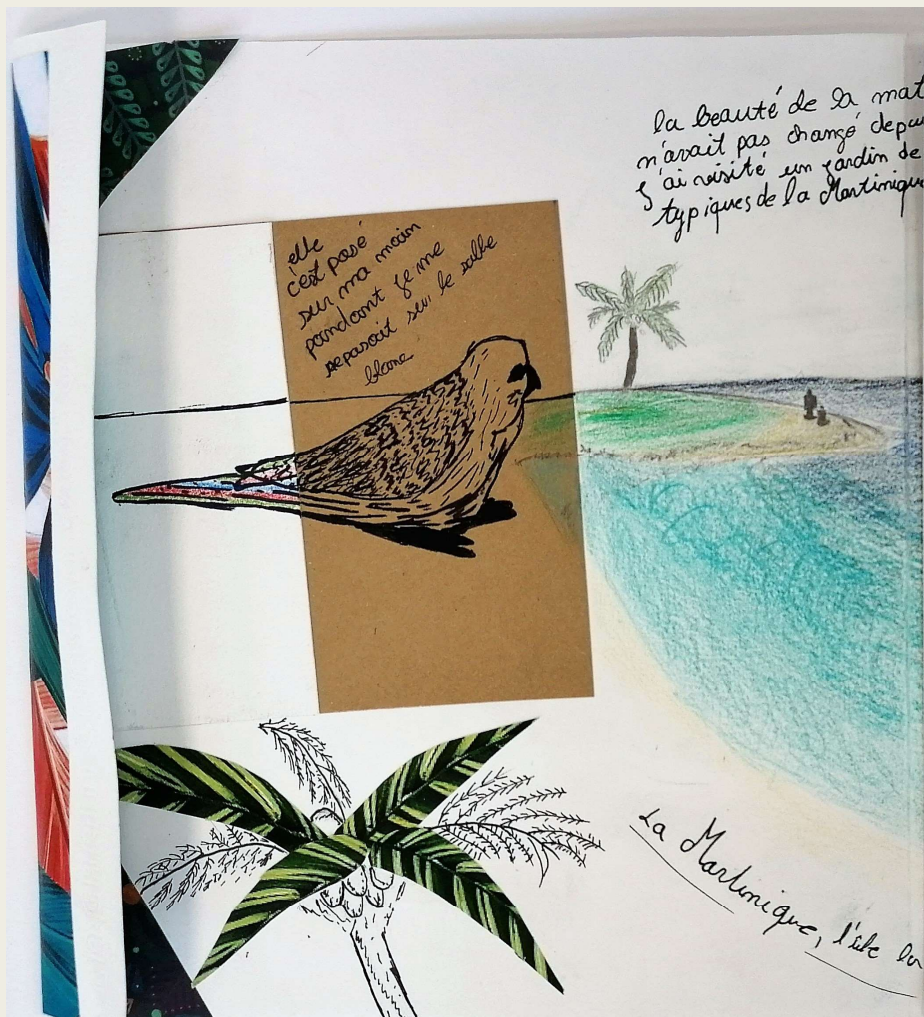 la beauté de la mat
n'avait pas changé depu
j'ai visité un jardin de
typiques de la Martinique
elle
c'est posé
sur ma main
pandant je me
reposait sur le sable
blanc
La Martinique, l'île